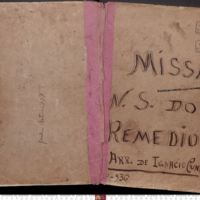 MISSA
N. S. DO
REMEDIO
ARR. DE IGNACIO CUN
930